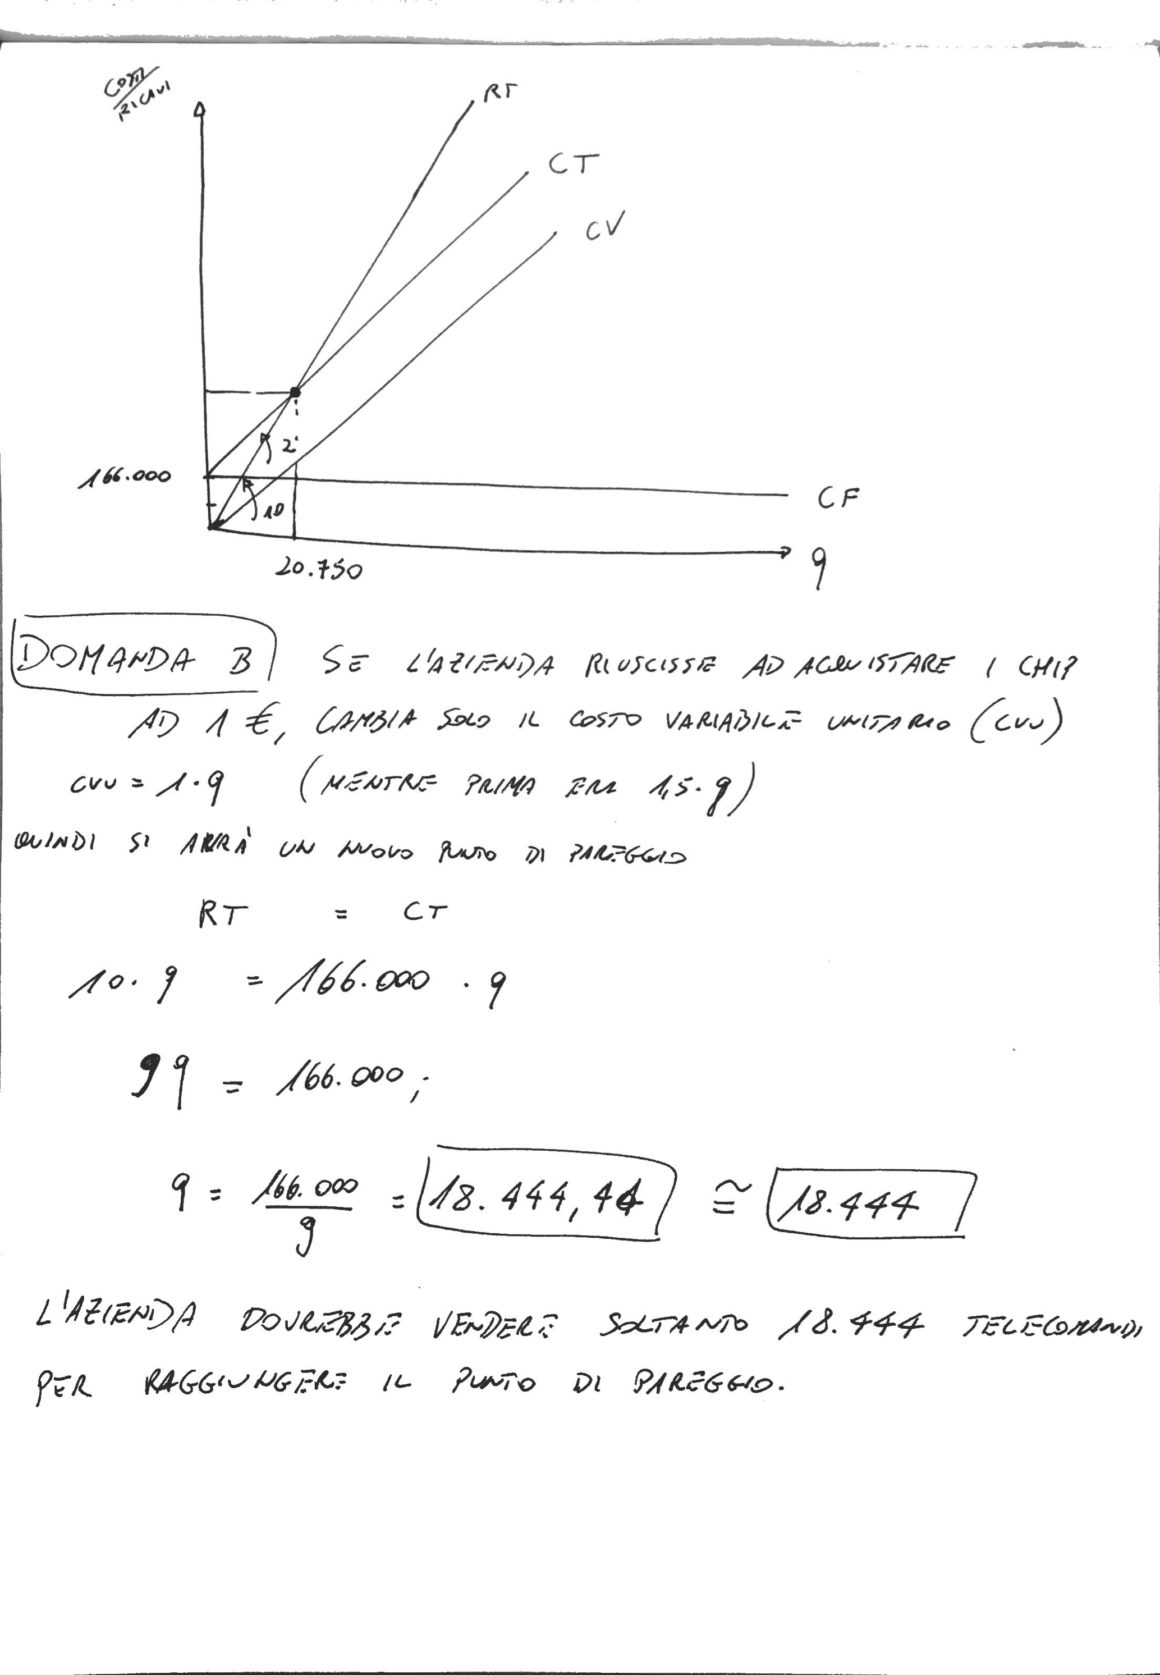 COSTI
RICAVI
RT
CT
CV
2
166.000
10
CF
20.750
q
DOMANDA B SE L'AZIENDA RIUSCISSE AD ACQUISTARE I CHIP
AD 1 €, CAMBIA SOLO IL COSTO VARIABILE UNITARIO (CVU)
CVU = 1·q (MENTRE PRIMA ERA 1,5·q)
QUINDI SI AVRÀ UN NUOVO PUNTO DI PAREGGIO
RT = CT
10·q = 166.000 · q
9q = 166.000;
q = 166.000 / 9 = 18.444,44 ≅ 18.444
L'AZIENDA DOVREBBE VENDERE SOLTANTO 18.444 TELECOMANDI
PER RAGGIUNGERE IL PUNTO DI PAREGGIO.